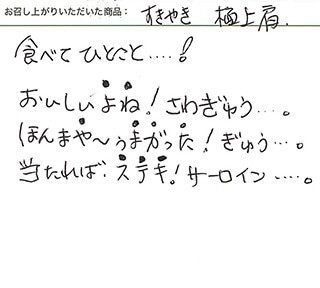 お召し上がりいただいた商品： すきやき 極上肩.
食べて ひとこと....!
おいしいよね! さわぎゅう....。
ほんまや〜うまかった! ぎゅう...。
当たれば、ステキ! サーロイン.....。